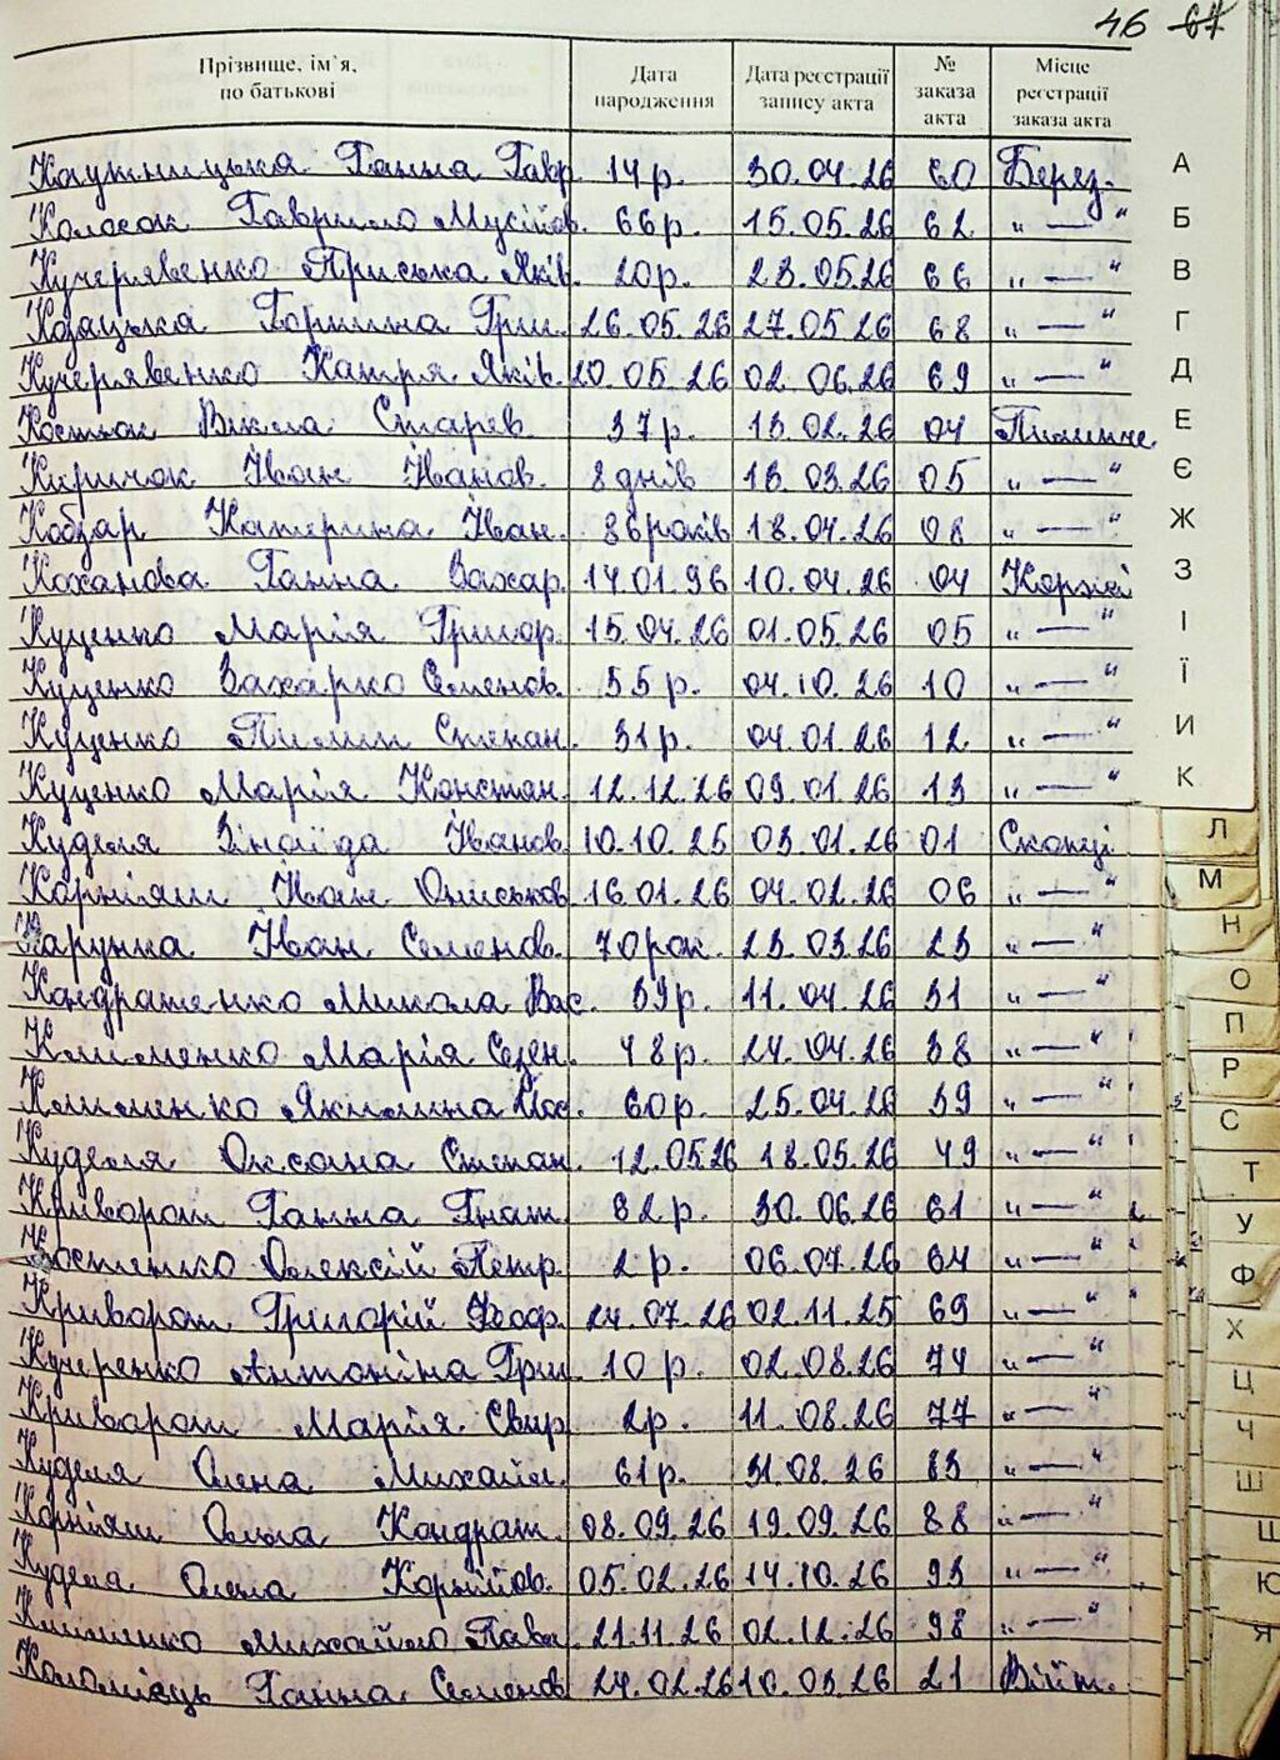 46 67
Прізвище, ім'я, по батькові Дата народження Дата реєстрації запису акта № заказа акта Місце реєстрації заказа акта
Ганна Гавр. 14 р. 30.04.26 60 Берез. А
Колосок Гаврило Мусійов. 66 р. 15.05.26 62 " — " Б
Кучерявенко Приська Яків. 20 р. 23.05.26 66 " — " В
Козацька Горпина Гри. 26.05.26 27.05.26 68 " — " Г
Кучерявенко Катря Яків. 20.05.26 02.06.26 69 " — " Д
Костюк Векла 37 р. 13.02.26 04 Е
Киричок Іван Іванов. 8 днів 13.03.26 05 " — " Є
Кобзар Катерина Іван. 86 років 18.04.26 08 " — " Ж
Коханова Ганна Захар. 14.01.96 10.04.26 04 Коржі З
Куценко Марія Григор. 15.04.26 01.05.26 05 " — " І
Куценко Захарко Семенов. 55 р. 04.10.26 10 " — " Ї
Куценко Пилип Степан. 31 р. 04.01.26 12 " — " И
Куценко Марія Констан. 12.12.26 09.01.26 13 " — " К
Куделя Зінаїда Іванов. 10.10.25 03.01.26 01 Скопці Л
Корніяш Іван Ониськов. 16.01.26 04.02.26 06 " — " М
Карунка Іван Семенов. 70 рок. 23.03.26 23 " — " Н
Кондратенко Микола Вас. 39 р. 11.04.26 31 " — " О
Клименко Марія 48 р. 24.04.26 38 " — " П
Клименко Якилина Йос. 60 р. 25.04.26 39 " — " Р
Куделя Оксана Степан. 12.05.26 18.05.26 49 " — " С
Криворот Ганна Гнат. 62 р. 30.06.26 61 " — " Т
Костенко Олексій Петр. 2 р. 06.07.26 64 " — " У
Криворот Григорій Феоф. 24.07.26 02.11.25 69 " — " Ф
Кучеренко Антоніна Гри. 10 р. 02.08.26 74 " — " Х
Криворот Марія Свир. 2 р. 11.08.26 77 " — " Ц
Куделя Олена Михайл. 61 р. 31.08.26 83 " — " Ч
Корніяш Ольга Кондрат. 08.09.26 19.09.26 88 " — " Ш
Щ
Куделя Олена Корнійов. 05.02.26 14.10.26 93 " — " Ю
Клименко Михайло Павл. 21.11.26 02.12.26 98 " — " Я
Коломієць Ганна Семенов. 24.02.26 10.03.26 21 Війт.